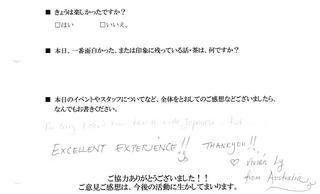 ■ きょうは楽しかったですか？
□はい　　□いいえ。
■ 本日、一番面白かった、または印象に残っている話・茶は、何ですか？
■ 本日のイベントやスタッフについてなど、全体をとおしてのご感想などございましたら、
なんでもお書きください。
I'm sorry I don't know how to write Japanese, but...
EXCELLENT EXPERIENCE!! THANKYOU!!
♡ Vivian Ly
from Australia
ご協力ありがとうございました！！
ご意見ご感想は、今後の活動に生かしてまいります。